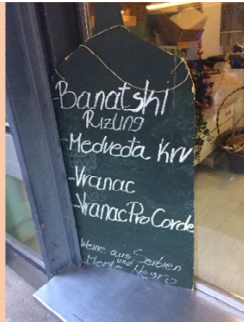 Banatski
Rizling
-Medveđa Krv
-Vranac
-Vranac Pro Corde
Weine aus Serbien
und
Monte Negro